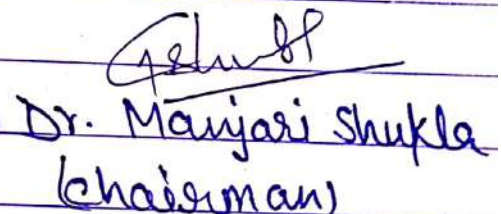 Dr. Manjari Shukla
(chairman)